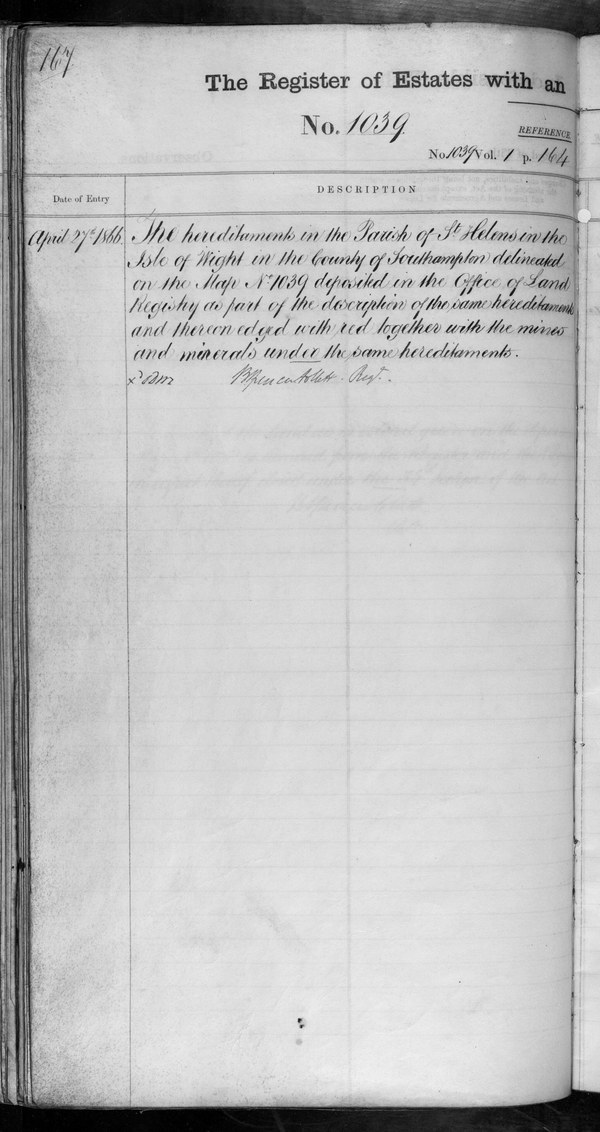 167
The Register of Estates with an
No. 1039.
REFERENCE
No 1039 Vol. 1 p. 164
Date of Entry
DESCRIPTION
April 27th 1866
The hereditaments in the Parish of St Helens in the
Isle of Wight in the County of Southampton delineated
on the Map No 1039 deposited in the Office of Land
Registry as part of the description of the same hereditaments
and thereon edged with red together with the mines
and minerals under the same hereditaments.
Regr.